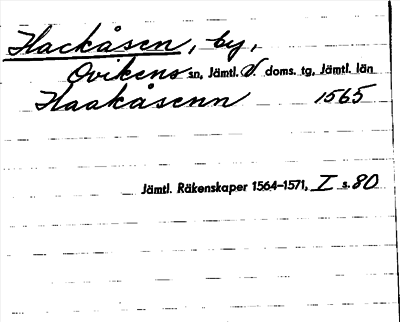 Hackåsen, by,
Ovikens sn, Jämtl. V. doms. tg, Jämtl. län
Haakåsenn 1565
Jämtl. Räkenskaper 1564-1571, I s. 80